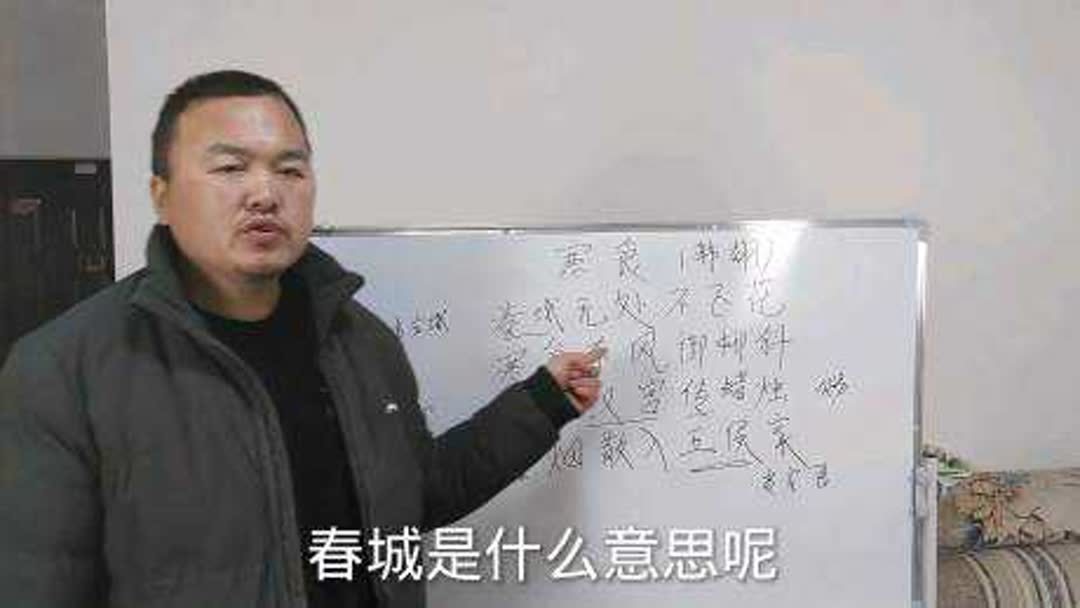 寒食(韩翃)
春城无处不飞花
寒食 风御柳斜
宫传蜡烛
烟散入五侯家
春城是什么意思呢